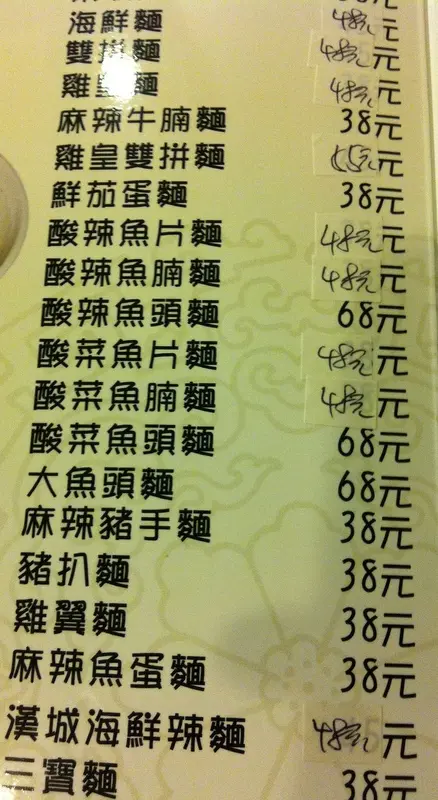 38元
海鮮麵 48元元
雙拼麵 48元元
雞皇麵 48元元
麻辣牛腩麵 38元
雞皇雙拼麵 55元元
鮮茄蛋麵 38元
酸辣魚片麵 48元元
酸辣魚腩麵 48元元
酸辣魚頭麵 68元
酸菜魚片麵 48元元
酸菜魚腩麵 48元元
酸菜魚頭麵 68元
大魚頭麵 68元
麻辣豬手麵 38元
豬扒麵 38元
雞翼麵 38元
麻辣魚蛋麵 38元
漢城海鮮辣麵 48元元
三寶麵 38元